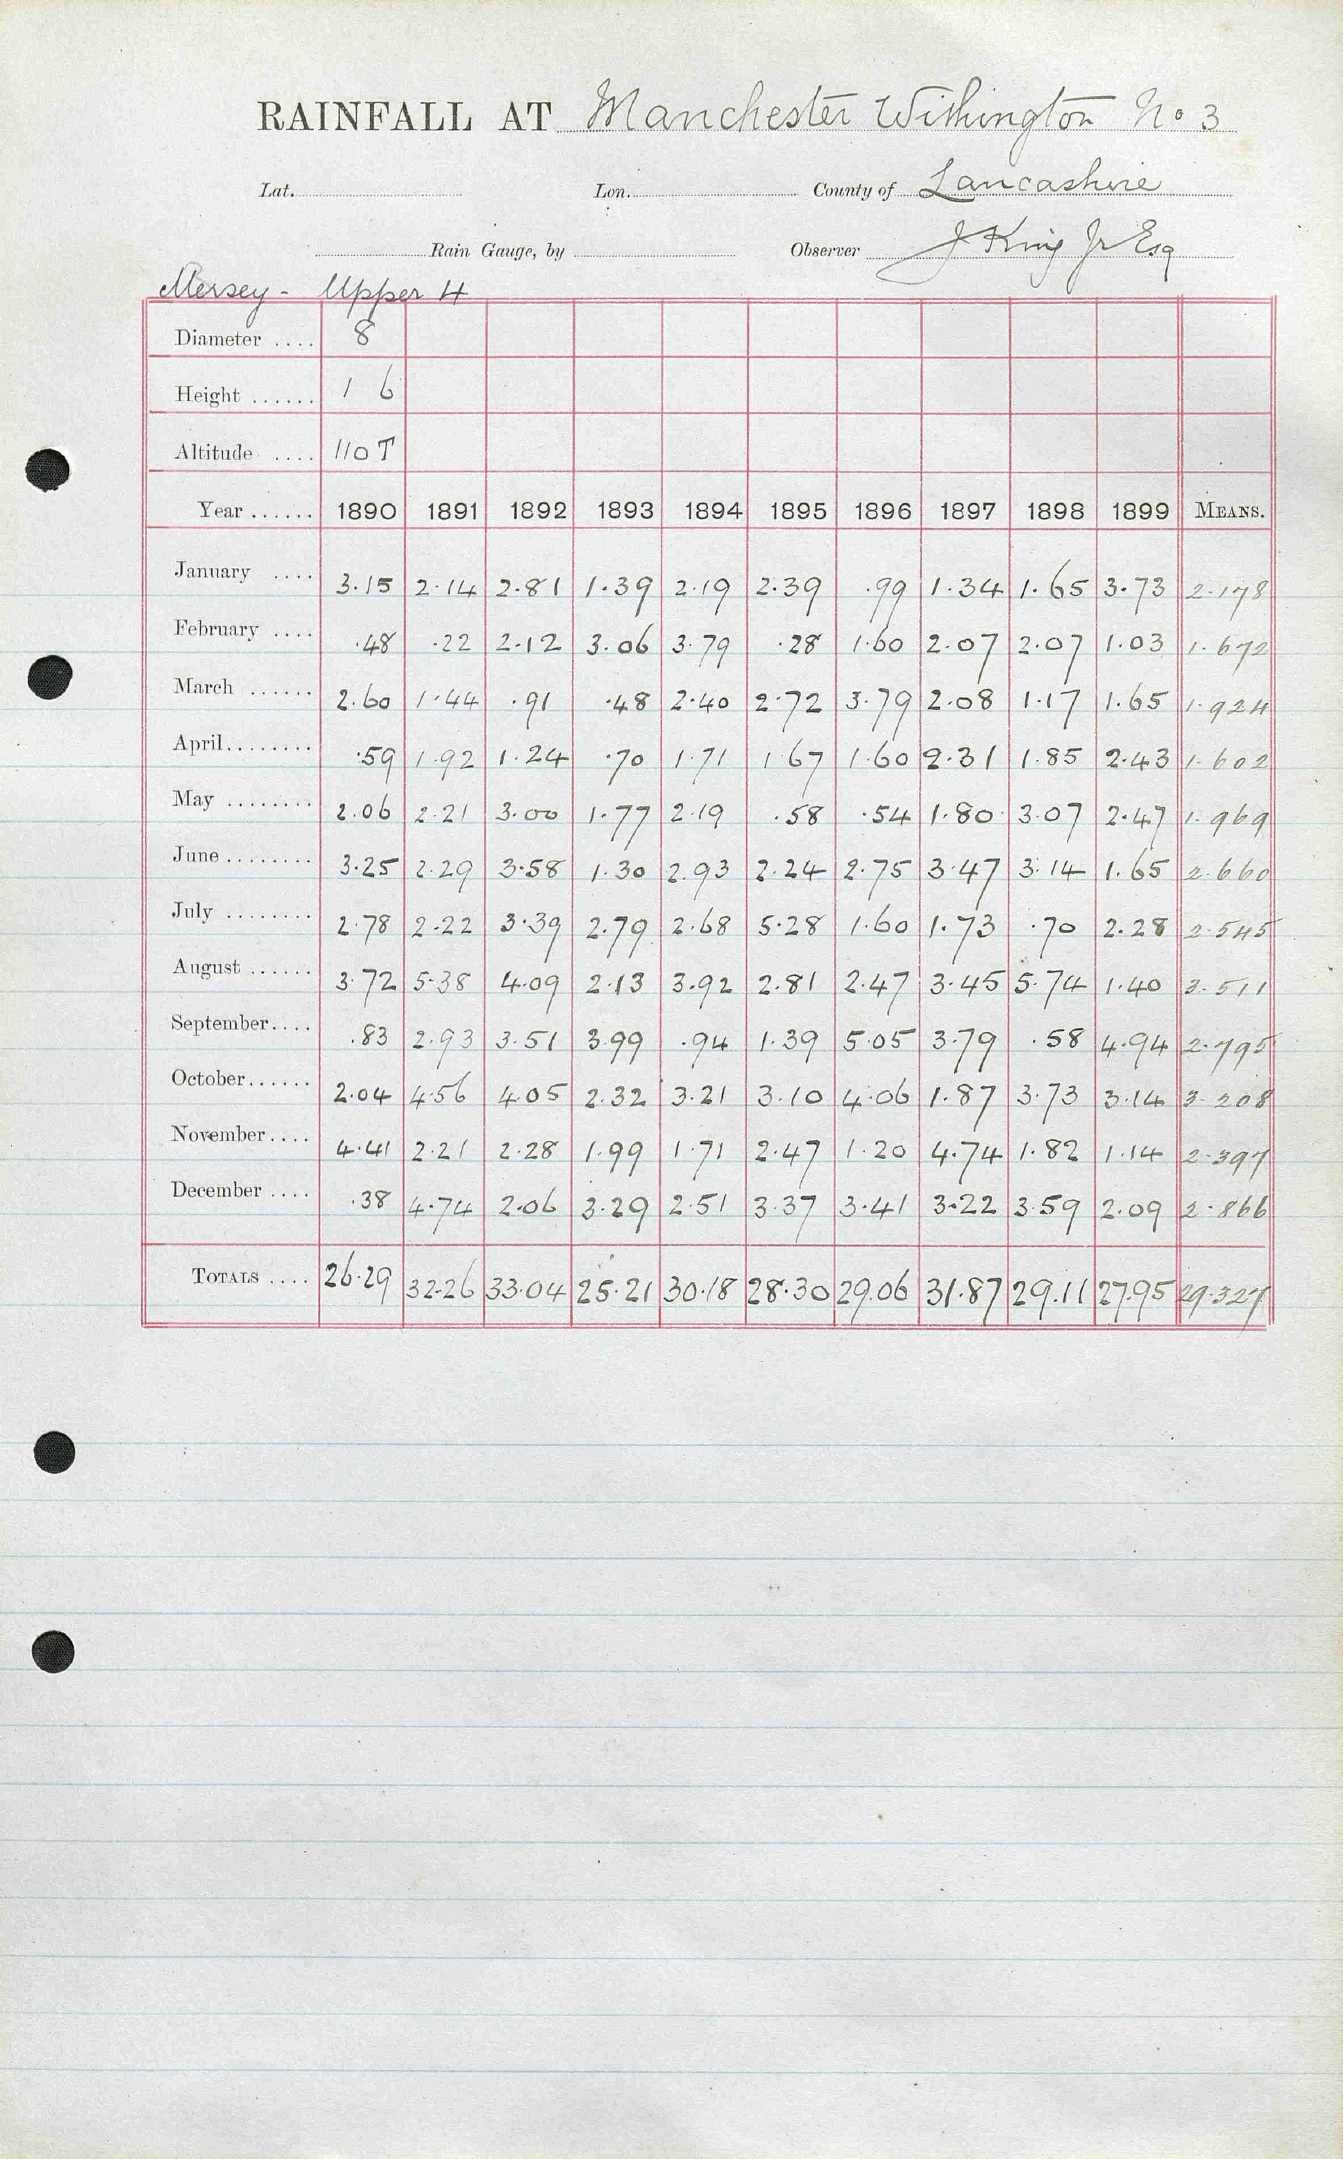 RAINFALL AT Manchester Withington No 3
Lat. Lon. County of Lancashire
Rain Gauge, by Observer J King Jr Esq
Mersey - Upper 4
Diameter .... 8
Height ...... 1 6
Altitude .... 110 T
Year ...... 1890 1891 1892 1893 1894 1895 1896 1897 1898 1899 MEANS.
January .... 3.15 2.14 2.81 1.39 2.19 2.39 .99 1.34 1.65 3.73 2.178
February .... .48 .22 2.12 3.06 3.79 .28 1.60 2.07 2.07 1.03 1.672
March ...... 2.60 1.44 .91 .48 2.40 2.72 3.79 2.08 1.17 1.65 1.924
April........ .59 1.92 1.24 .70 1.71 1.67 1.60 2.31 1.85 2.43 1.602
May ........ 2.06 2.21 3.00 1.77 2.19 .58 .54 1.80 3.07 2.47 1.969
June ........ 3.25 2.29 3.58 1.30 2.93 2.24 2.75 3.47 3.14 1.65 2.660
July ........ 2.78 2.22 3.39 2.79 2.68 5.28 1.60 1.73 .70 2.28 2.545
August ...... 3.72 5.38 4.09 2.13 3.92 2.81 2.47 3.45 5.74 1.40 3.511
September.... .83 2.93 3.51 3.99 .94 1.39 5.05 3.79 .58 4.94 2.795
October...... 2.04 4.56 4.05 2.32 3.21 3.10 4.06 1.87 3.73 3.14 3.208
November.... 4.41 2.21 2.28 1.99 1.71 2.47 1.20 4.74 1.82 1.14 2.397
December .... .38 4.74 2.06 3.29 2.51 3.37 3.41 3.22 3.59 2.09 2.866
TOTALS .... 26.29 32.26 33.04 25.21 30.18 28.30 29.06 31.87 29.11 27.95 29.327